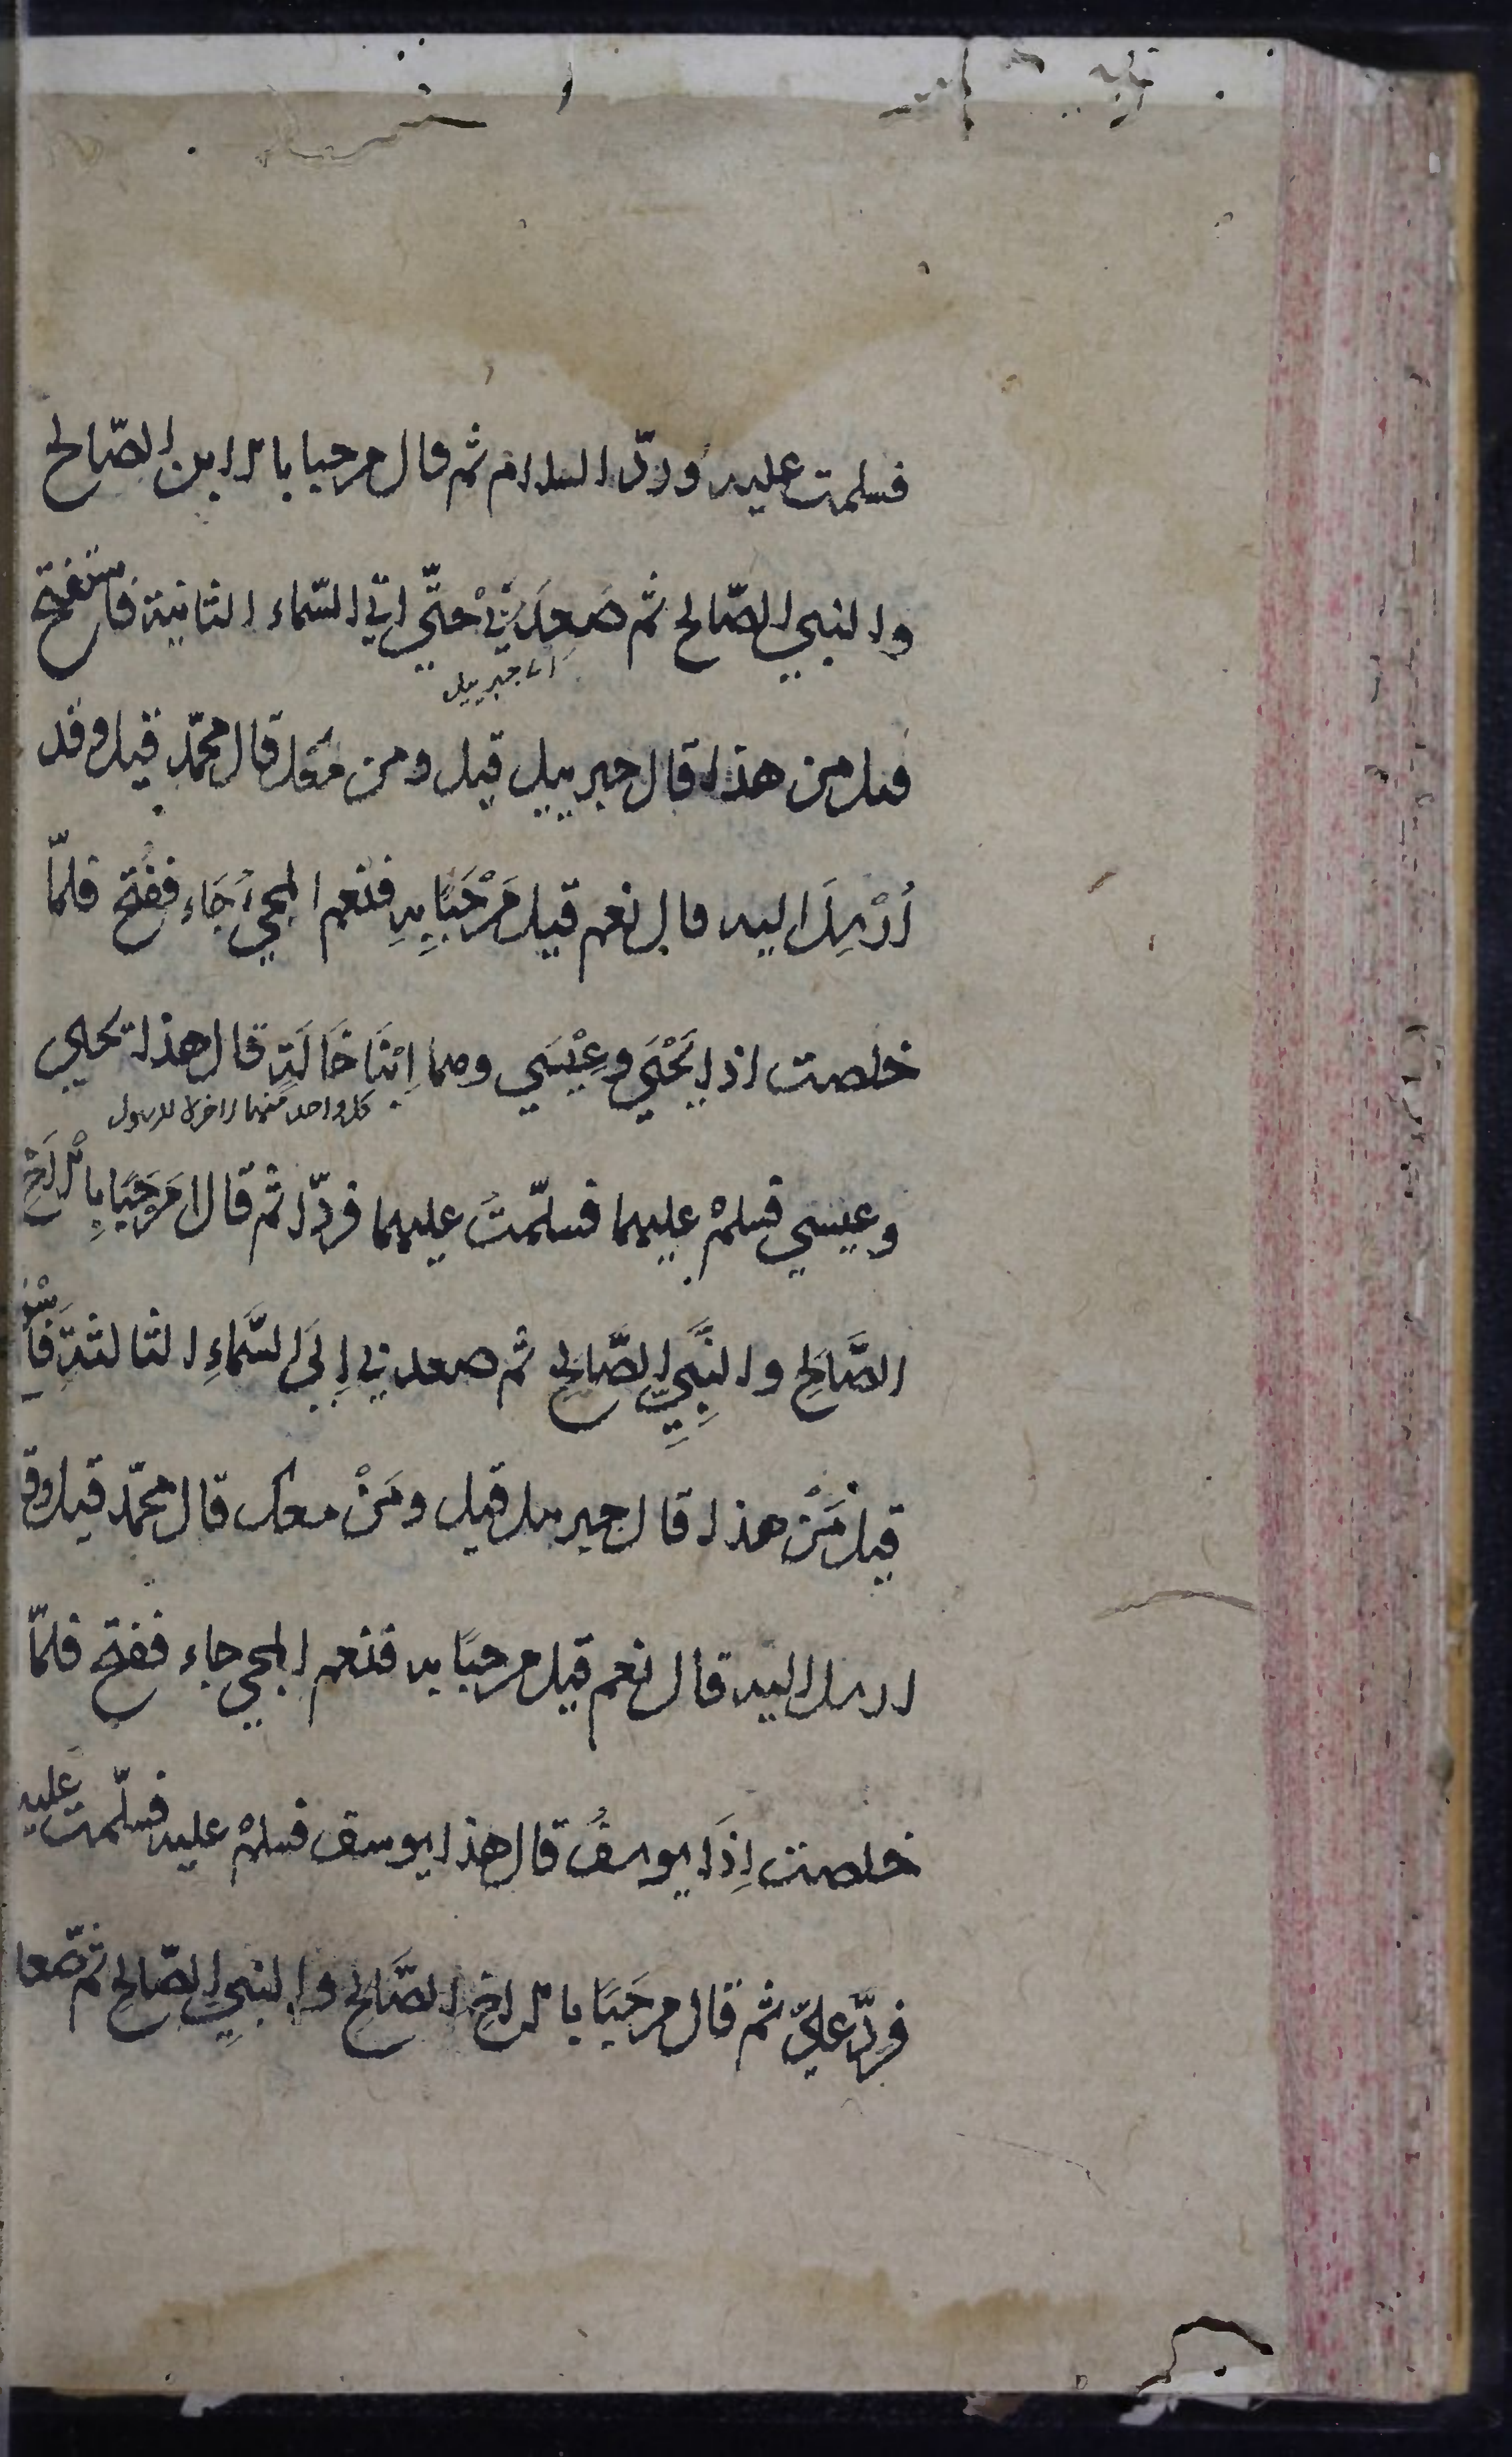 فسلمت عليه وردّ السلام ثم قال مرحبا بالابن الصّالح
والنبي الصّالح ثم صَعِدَ بِيْ حتّي اتي السّماء الثانية فاستفتح
اي جبرييل
فيل من هذا قال جبرييل قيل ومن معك قال محمّد قيل وقد
أُرْسِلَ اليه قال نعم قيل مَرْحَبًا بِهِ فنعم المجيُ جَاء ففُتح فلمّا
خلصت اذا يَحْيَي وعِيْسَي وهما اِبْنَا خَالَةٍ قال هذا يحيي
كل واحد منهما
وعيسي فسلمْ عليهما فسلّمتُ عليهما فردّا ثم قالا مَرحَبًا بِالْاَخِ
الصَّالِحِ والنَّبِيِّ الصَّالِحِ ثم صعد بي اِلَي السَّمَاءِ الثالثةِ فاَسْتـ
قيل مَنْ هذا قال جبرييل قيل ومَنْ معك قال محمّد قيل وقـ
ارسل اليه قال نعم قيل مرحبًا به فنعم المجي جاء ففتح فلمّا
خلصت اِذَا يوسفُ قال هذا يوسف فسلمْ عليه فسلّمت عليه
فردّ عليّ ثم قال مرحَبًا بالاخِ الصَّالِحِ والنبيِ الصّالح ثم صّعا